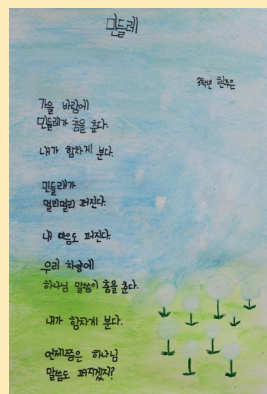 민들레
3학년 현주은
가을 바람에
민들레가 춤을 춘다.
내가 힘차게 분다.
민들레가
멀리멀리 퍼진다.
내 마음도 퍼진다.
우리 차량에
하나님 말씀이 춤을 춘다.
내가 힘차게 분다.
언제쯤은 하나님
말씀도 퍼지겠지?